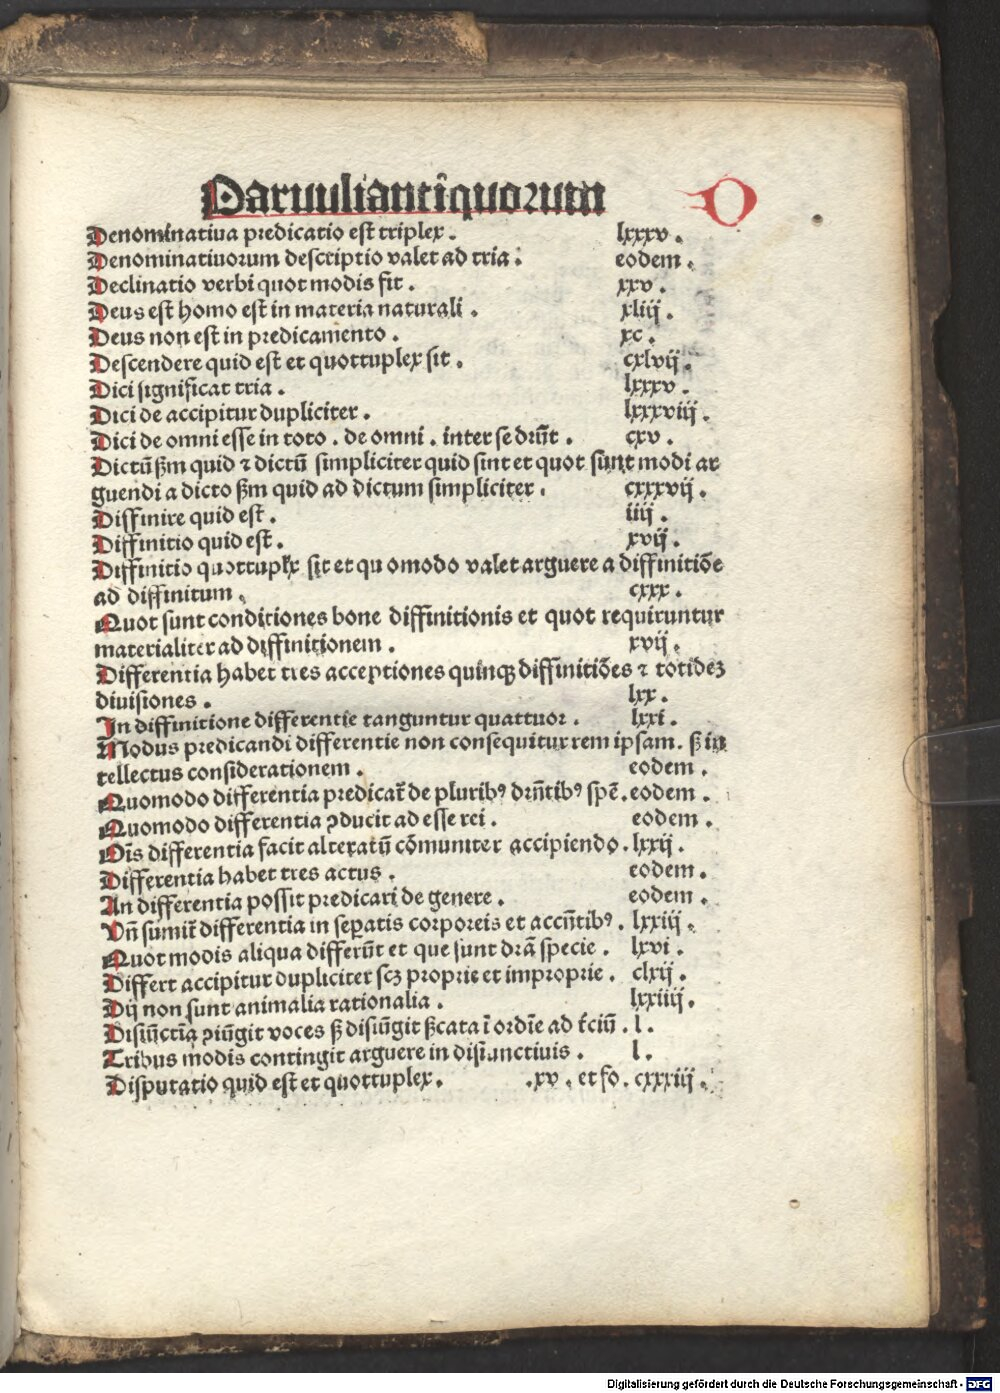 Paruuli antiquorum
D
Denominatiua predicatio est triplex . lxxxv .
Denominatiuorum descriptio valet ad tria . eodem .
Declinatio verbi quot modis fit . xxv .
Deus est homo est in materia naturali . xliij .
Deus non est in predicamento . xc .
Descendere quid est et quottuplex sit . cxlvij .
Dici significat tria . lxxxv .
Dici de accipitur dupliciter . lxxxviij .
Dici de omni esse in toto . de omni . inter se drñt . cxv .
Dictũ ẞm quid ⁊ dictũ simpliciter quid sint et quot sunt modi ar
guendi a dicto ẞm quid ad dictum simpliciter . cxxxvij .
Diffinire quid est . iiij .
Diffinitio quid est . xvij .
Diffinitio quottuplex sit et quomodo valet arguere a diffinitiõe
ad diffinitum . cxxx .
Quot sunt conditiones bone diffinitionis et quot requiruntur
materialiter ad diffinitionem . xvij .
Differentia habet tres acceptiones quinqꝫ diffinitiões ⁊ totideꝫ
diuisiones . lxx .
In diffinitione differentie tanguntur quattuor . lxxi .
Modus predicandi differentie non consequitur rem ipsam . ẞ in
tellectus considerationem . eodem .
Quomodo differentia predicat̃ de pluribꝰ drñtibꝰ spẽ . eodem .
Quomodo differentia ꝯducit ad esse rei . eodem .
Oĩs differentia facit alteratũ cõmuniter accipiendo . lxxij .
Differentia habet tres actus . eodem .
An differentia possit predicari de genere . eodem .
Vñ sumit̃ differentia in sepatis corporeis et accñtibꝰ . lxxiij .
Quot modis aliqua differũt et que sunt drã specie . lxvi .
Differt accipitur dupliciter scꝫ proprie et improprie . clxij .
Dij non sunt animalia rationalia . lxxiiij .
Disiũctĩa ꝯiũgit voces ẞ disiũgit ẞcata ĩ ordĩe ad t̃ciũ . l .
Tribus modis contingit arguere in disiunctiuis . l .
Disputatio quid est et quottuplex . .xv . et fo . cxxxiij .
Digitalisierung gefördert durch die Deutsche Forschungsgemeinschaft - DFG